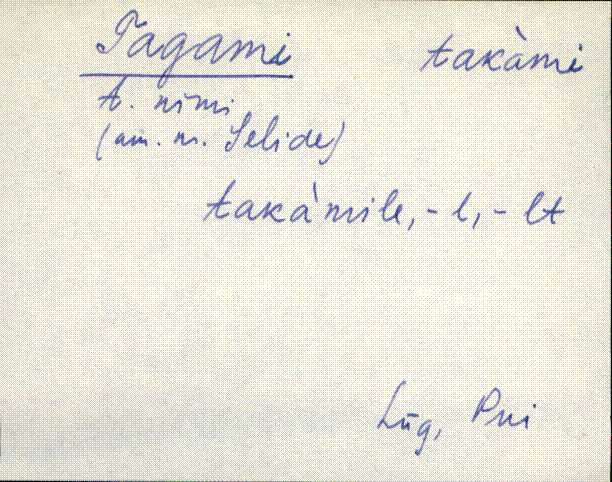 Tagami takàmi
t. nimi
(am. n. Selide)
takàmile, -l, -lt
Lüg, Pui